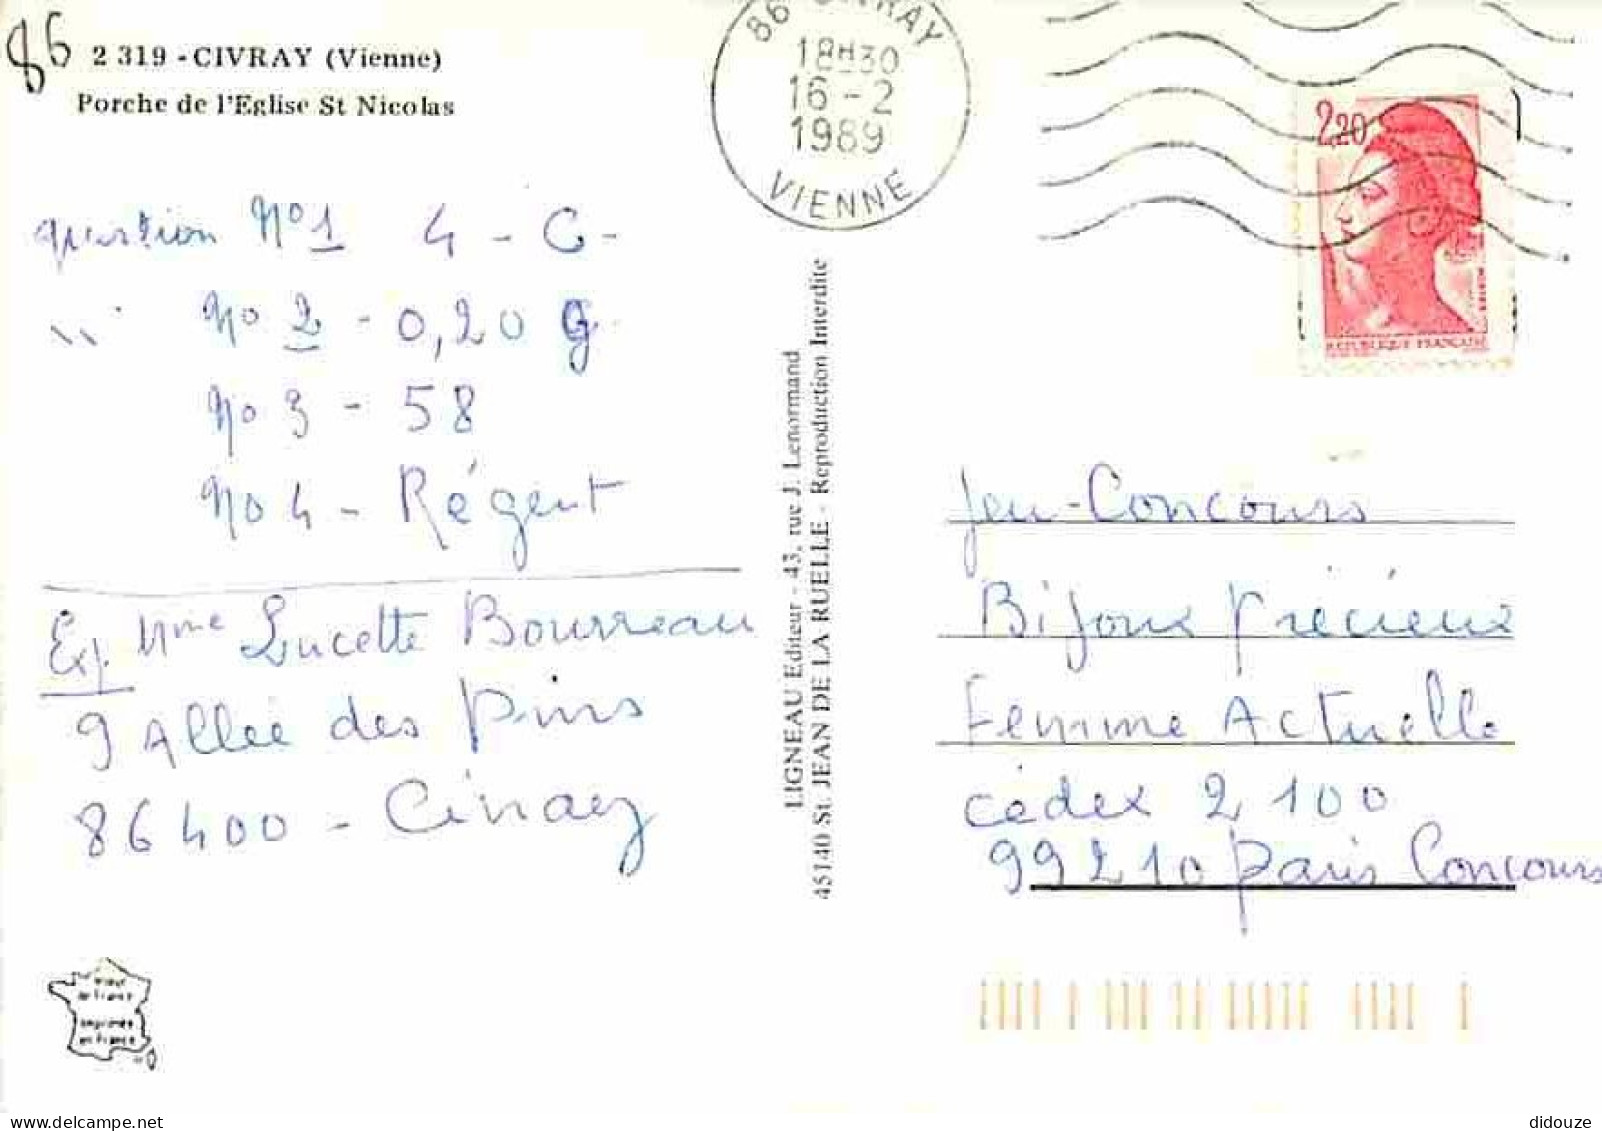 86
2 319 - CIVRAY (Vienne)
Porche de l'Eglise St Nicolas
86 CIVRAY
18H30
16 - 2
1989
VIENNE
2,20
REPUBLIQUE FRANÇAISE
question N°1 4 - C -
" N° 2 - 0,20 G
N° 3 - 58
N° 4 - Régent
Exp. Mme Lucette Bourreau
9 Allée des Pins
86400 - Civray
LIGNEAU Editeur - 43, rue J. Lenormand
45140 St. JEAN DE LA RUELLE - Reproduction Interdite
Jeu-Concours
Bijoux Précieux
Femme Actuelle
cédex 2 100
99210 Paris Concours
de France
imprimée
en France
didouze